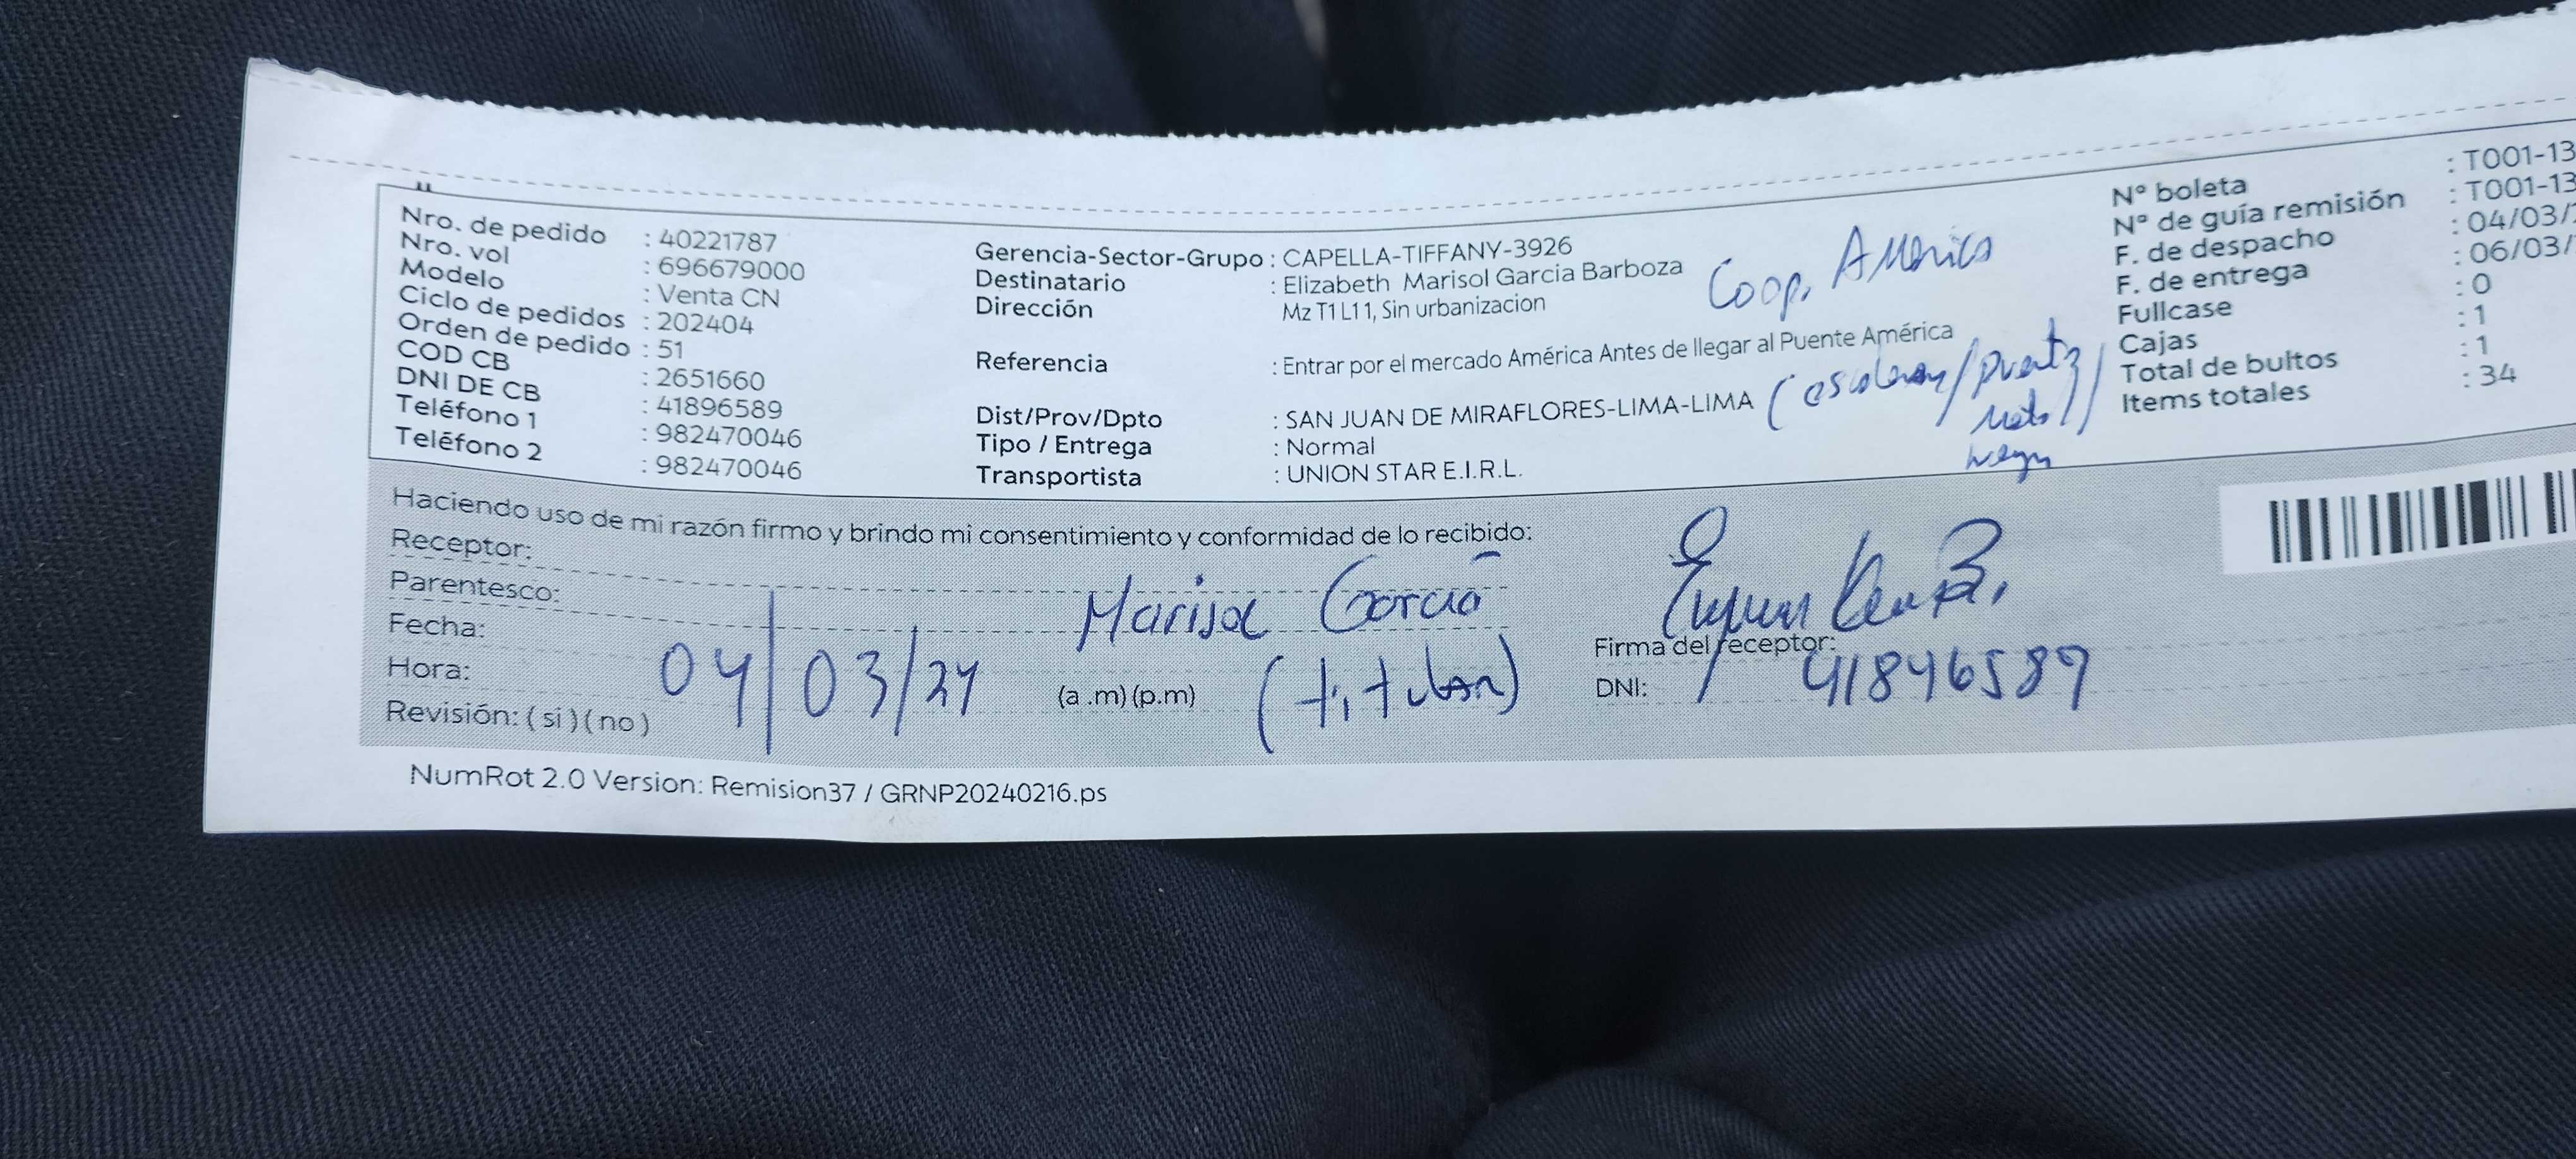 Nro. de pedido : 40221787
Nro. vol : 696679000
Modelo : Venta CN
Ciclo de pedidos : 202404
Orden de pedido : 51
COD CB : 2651660
DNI DE CB : 41896589
Teléfono 1 : 982470046
Teléfono 2 : 982470046
Gerencia-Sector-Grupo : CAPELLA-TIFFANY-3926
Destinatario : Elizabeth Marisol Garcia Barboza
Dirección Mz T1 L11, Sin urbanizacion
Coop. América
Referencia : Entrar por el mercado América Antes de llegar al Puente América
Dist/Prov/Dpto : SAN JUAN DE MIRAFLORES-LIMA-LIMA
Tipo / Entrega : Normal
Transportista : UNION STAR E.I.R.L.
N° boleta : T001-13
N° de guía remisión : T001-13
F. de despacho : 04/03/
F. de entrega : 06/03/
Fullcase : 0
Cajas : 1
Total de bultos : 1
Items totales : 34
Haciendo uso de mi razón firmo y brindo mi consentimiento y conformidad de lo recibido:
Receptor:
Parentesco:
Marisol Garcia
Fecha:
04/03/24
Hora: (a .m) (p.m)
(titular)
Revisión: ( si ) ( no )
Firma del receptor:
DNI: 41846589
NumRot 2.0 Version: Remision37 / GRNP20240216.ps